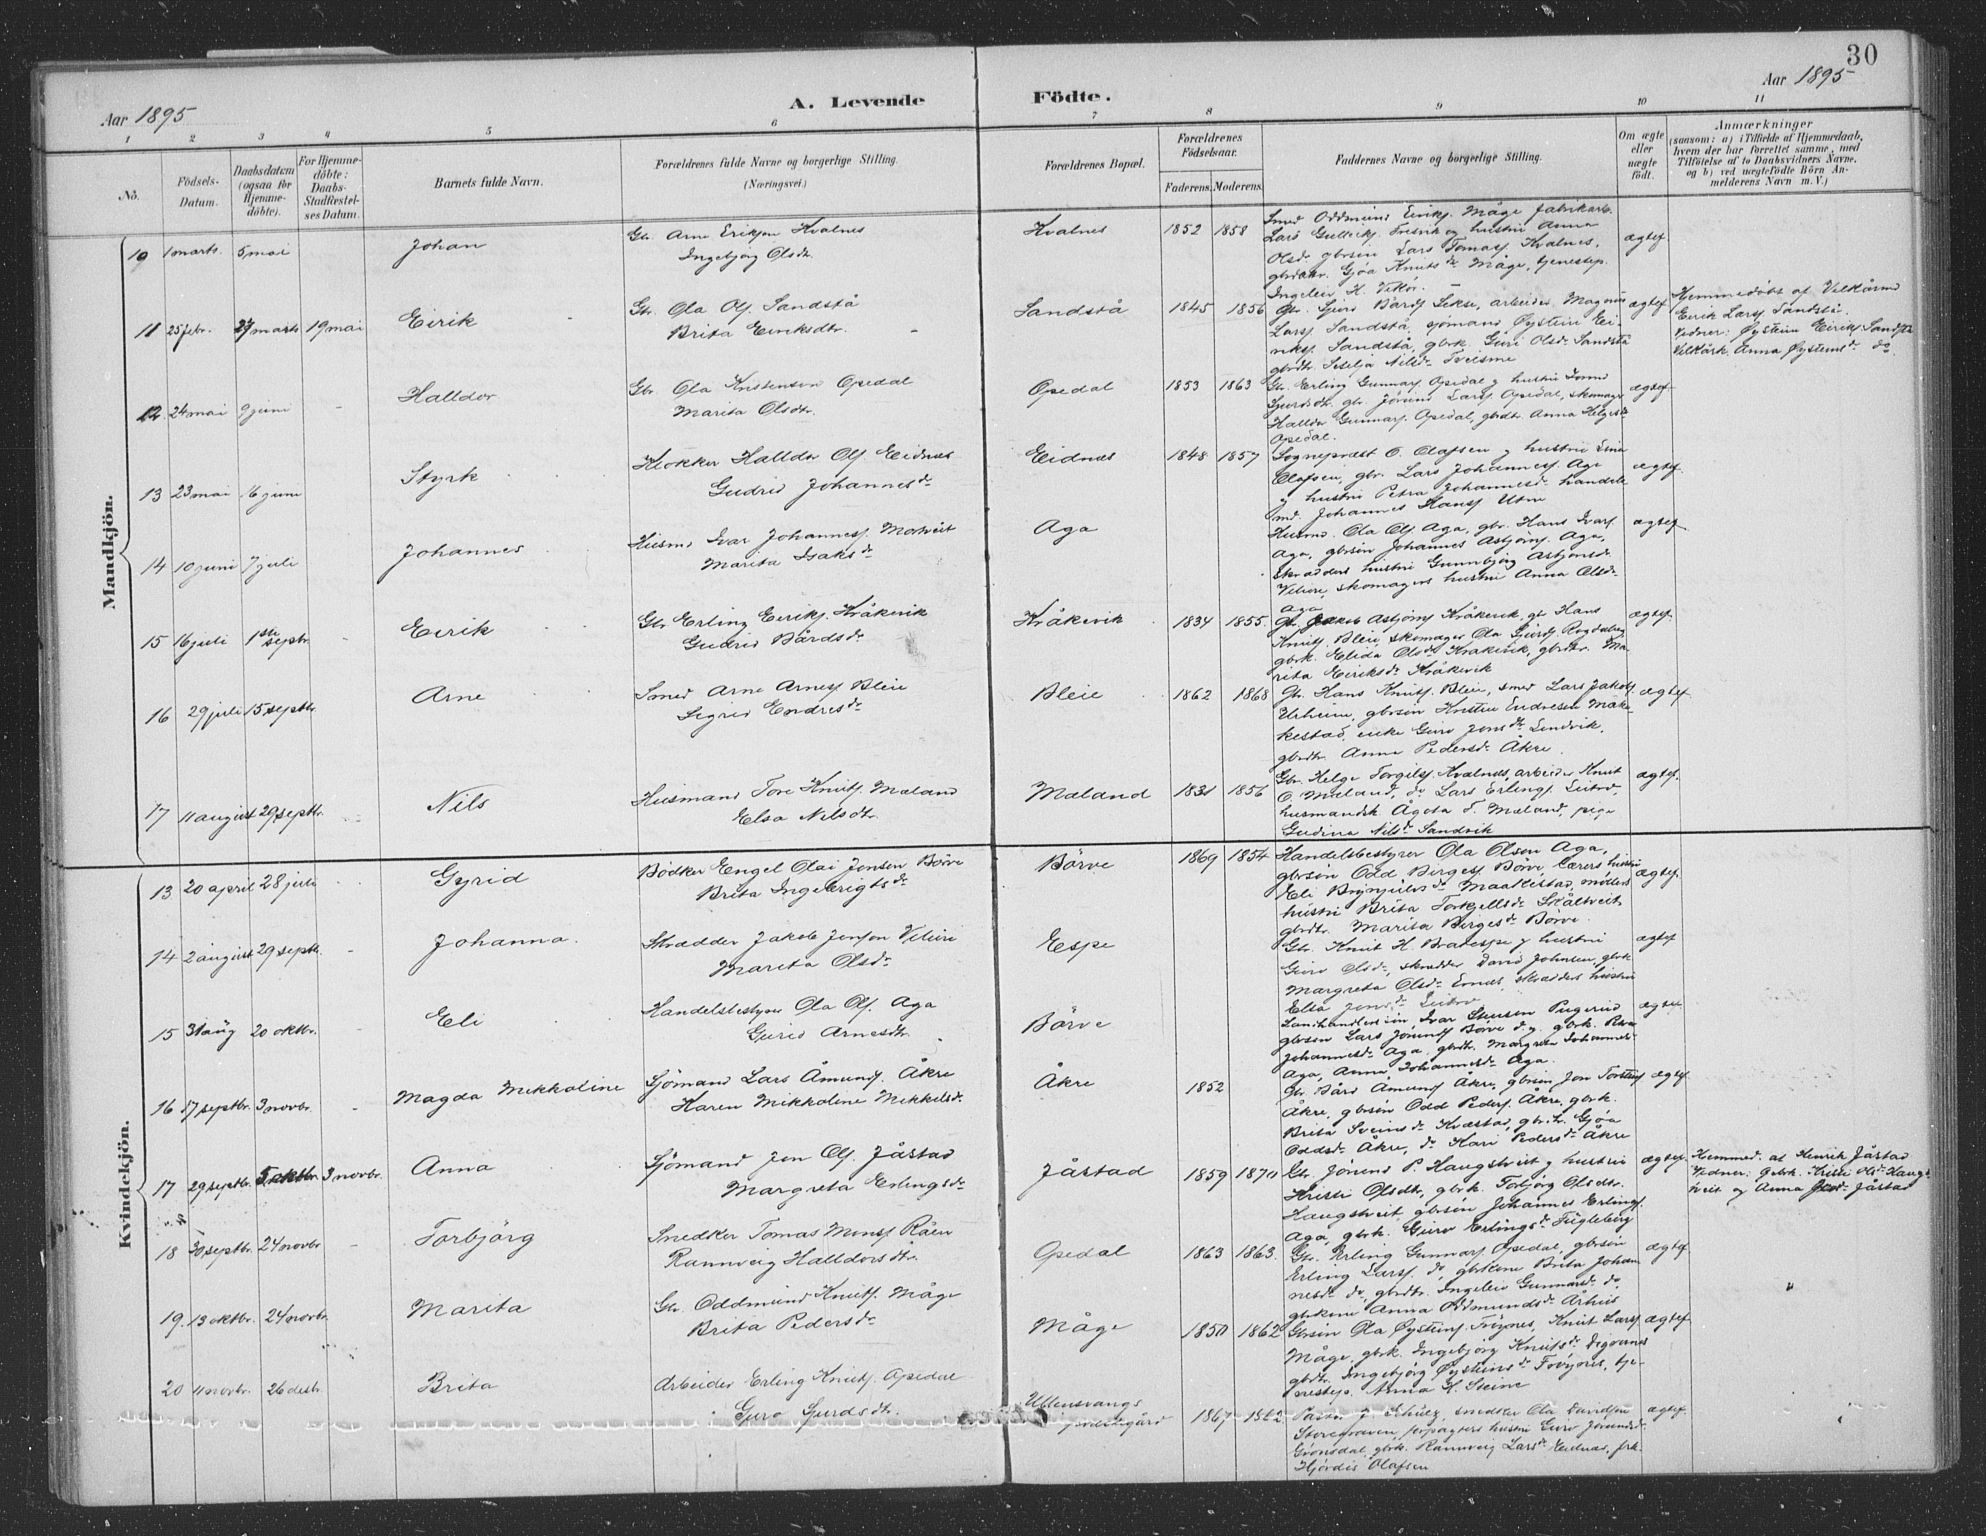 30
Aar 1895
A. Levende Födte.
Aar 1895
1 2 3 4 5 6 7 8 9 10 11
No.
Födsels-
Datum.
Daabsdatum
(ogsaa for
Hjemme-
döbte).
For Hjemme-
döbte:
Daabs-
Stadfæstel-
ses Datum.
Barnets fulde Navn.
Forældrenes fulde Navne og borgerlige Stilling.
(Næringsvei.)
Forældrenes Bopæl.
Forældrenes
Födselsaar.
Faderens. Moderens.
Faddernes Navne og borgerlige Stilling.
Om ægte
eller
uægte
födt.
Anmærkninger
(saasom: a) i Tilfælde af Hjemmedaab,
hvem der har forrettet samme, med
Tilföielse af to Daabsvidners Navne,
og b) ved uægtefödte Börn An-
melderens Navn m. V.)
Mandkjön.
10 1 marts 5 mai Johan
Gbr. Arne Eriksen Kvalnes
Ingebjørg Olsdtr.
Kvalnes 1852 1858
Smed Oddmund Eiriks. Måge fabrikarb.
hustru Anna
Olsd. gbrsön Lars Tomass. Kvalnes,
Gjøa Knutsdr Måge, tjenestep.
Ingeleiv H. Vikör.
ægtef.
11 25 febr. 27 marts 19 mai Eirik
Gbr. Ola Ols. Sandstå
Brita Eiriksdtr.
Sandstå 1845 1856
Gbr. Sjurd Bårds. Lekse, arbeider Magnus
Larss. Sandstå, sjömand Øystein Ei-
riks. Sandstå, gbrk. Guri Olsdr. Sandstå
gbrdtr. Seselja Nilsdr. Tveisme
ægtef.
Hjemmedøbt af Vilkårmd
Eirik Larss. Sandstå.
Vidner: Øystein Eiriks. Sandstå
Vilkårk. Anna Øysteinsdr. do
12 24 mai 9 juni Halldor
Gbr. Ola Kristensen Opedal
Marita Olsdtr.
Opedal 1853 1863
Gbr. Erling Gunnars. Opedal og hustru
Sjursdtr. gbr. Jörund Larss. Opedal, skomager
Halldor Gunnars. Opedal, gbrdtr. Anna Helgesdr.
Opedal.
ægtef.
13 23 mai 16 juni Styrk
Klokker Halldor Ols. Eidnes
Gudrid Johannesdr.
Eidnes 1848 1857
Sogneprest O. Olafsen og hustru Lina
Olafsen, gbr. Lars Johanness. Aga
og hustru Petra Johannesdr. handels-
md. Johannes Hanss. Utne
ægtef.
14 10 juni 7 juli Johannes
Husmd Ivar Johanness. Mothveit
Marita Isaksdr.
Aga
Husmd. Ola Ols. Aga, gbr. Hans Ivars.
Aga, gbrsön Johannes Asbjörns. Aga,
skradders hustru Gunnbjörg Asbjörnsdr.
Velure, skomagers hustru Anna Olsdr.
Aga
ægtef.
15 16 juli 1ste septbr. Eirik
Gbr Erling Eiriks. Kråkevik
Gudrid Bårdsdr
Kråkevik 1834 1855.
Gbr. Jakob Asbjörns. Kråkevik, gbr Hans
Knuts. Bleie, skomager Ola Sjurds.
gbrk. Elida Olsdr. Kråkevik, gbrdtr. Ma-
rita Eiriksdr. Kråkevik
ægtef.
16 29 juli 15 septbr. Arne
Smed Arne Arness. Bleie
Sigrid Endresdr
Bleie 1862 1868
Gbr. Hans Knuts. Bleie, smed Lars Jakobs.
Urheim, gbrsön Kristen Endresen Måke-
kestad, enke Guro Jonsdr. Sandvik,
gbrdtr. Anna Pedersdr. Åkre.
ægtef.
17 11 august 29 septbr. Nils
Husmand Tore Knuts. Mæland
Elsa Nilsdtr.
Mæland 1831 1856
Gbr. Helge Torgils. Kvalnes, arbeider Knut
O. Mæland, do Lars Erlings. Leikvo,
husmandsk. Ågota T. Mæland, pige
Gudina Nilsdr. Sandvik
ægtef.
Kvindekjön.
13 20 april 28 juli Gyrid
Bödker Engel Olai Jensen Börve
Brita Ingebrigtsdr
Börve 1869 1854
Handelsbestyrer Ola Olsen Aga,
gbrsön Odd Birges. Börve, lærers hustru
Eli Brynjulvsdr. Maakestad, möllers
hustru Brita Torkjellsdr. Skåltveit
gbrdtr. Marita Birgesdr. Börve.
ægtef.
14 2 august 29 septbr. Johanna.
Skrædder Jakob Jonsen Velure
Marita Olsdr
Espe
Gbr. Knut H. Bradespe og hustru
Guro Olsdr., skrædder David Johnsen, gbrk
Margreta Olsdr. Ernæs, skrædders hustru
Elsa Jonsdr. Leikvo
ægtef
15 31 aug 20 oktbr. Eli
Handelsbestyrer Ola Ols. Aga
Gurid Arnesdtr.
Börve
Ivar
gbrsön Lars Jörunds. Börve d.y. gbrk. Petra
Johannesdr. Aga, gbrdtr. Margreta Johannesdr.
Aga, Anna Johannesdr. Aga.
ægtef.
16 17 septbr. 3 novbr. Magda Mikkoline
Sjömand Lars Åmunds. Åkre
Karen Mikkoline Mikkelsdr.
Åkre 1852
Gbr. Bård Åmunds. Åkre, gbrsön Jon Torsteins.
Åkre, gbrsön Odd Peders. Åkre, gbrk.
Brita Sveinsdr. Kvæstad, gbrdtr. Gjøa
Oddsdr. Åkre, do Kari Pedersdr. Åkre
ægtef.
17 29 septbr. 5 oktbr. 3 novbr. Anna
Sjömand Jon Ols. Jåstad
Margreta Erlingsdr
Jåstad 1859 1870
Gbr. Jörund P. Haugstveit og hustru
Kristi Olsdtr, gbrk. Torbjörg Olsdtr.
Haugstveit, gbrsön Johannes Erlings.
Aga, gbrk. Guro Erlingsdr. Fugleberg
ægtef.
Hjemmed. af Henrik Jåstad
Vidner: Gbrk. Kristi Olsdr. Haugst-
veit og Anna Jåstad
18 30 septbr. 24 novbr Torbjörg
Snedker Tomas Monss. Råen
Rannveig Halldorsdtr.
Opedal 1863 1863.
Gbr. Erling Gunnars. Opedal, gbrsön
Erling Larss. do, gbrkone Brita Johan-
nesdr. do, gbrdtr. Ingeleiv Gunnarsdr. do,
gbrkone Anna Oddmundsdr. Århus
ægtef.
19. 13 oktbr. 24 novbr. Marita
Gbr. Oddmund Knuts. Måge
Brita Pedersdr
Måge 1850 1862
Gbrsön Ola Øysteins. Tröynes, Knut Larss.
Måge, gbrk. Ingebjörg Knutsdr. Digranes
gbrdtr. Ingebjörg Øysteinsdr. Tröynes, tje-
nestep. Anna K. Steine
ægtef.
20 11 novbr. 26 decbr. Brita
Arbeider Erling Knuts. Opedal
Guro Sjurdsdtr.
Ullensvangs
prestegård 1867 1862
Pastor J. Schulz, snedker Ola Davidsen
Storegraven, forpagters hustru Guro Jörundsdr.
Grönsdal, gbrk. Rannveig Larsdr. Eidnes, frk.
Hjördis Olafsen
ægtef.